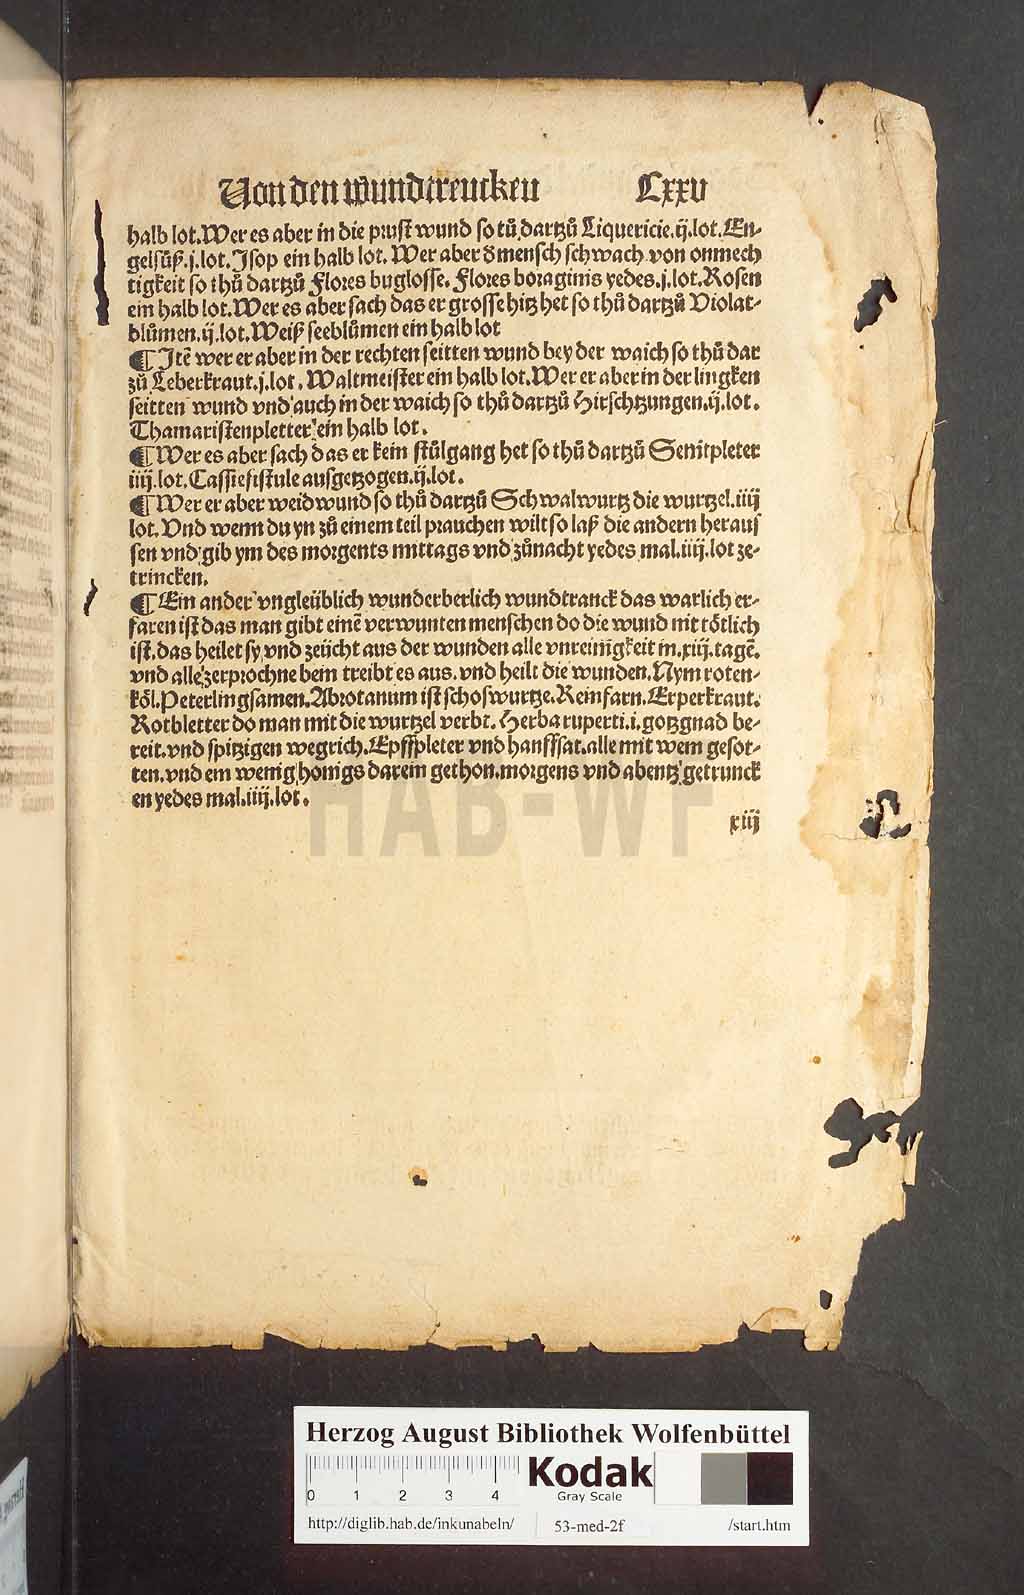 Von den wundtrencken Lxxv
halb lot. Wer es aber in die prust wund so tů dartzů Liquericie.ij.lot. En-
gelsüß.j.lot. Jsop ein halb lot. Wer aber d mensch schwach von onmech
tigkeit so thů dartzů Flores buglosse. Flores boraginis yedes.j.lot. Rosen
ein halb lot. Wer es aber sach das er grosse hitz het so thů dartzů Violat-
blůmen.ij.lot. Weiß seeblůmen ein halb lot
¶ Jtē wer er aber in der rechten seitten wund bey der waich so thů dar
zů Leberkraut.j.lot. Waltmeister ein halb lot. Wer er aber in der lingken
seitten wund vnd auch in der waich so thů dartzů Hirschtzungen.ij.lot.
Thamaristenpletter ein halb lot.
¶ Wer es aber sach das er kein stůlgang het so thů dartzů Senitpleter
iiij.lot. Cassiefistule ausgetzogen.ij.lot.
¶ Wer er aber weidwund so thů dartzů Schwalwurtz die wurtzel.iiij
lot. Vnd wenn du yn zů einem teil prauchen wilt so laß die andern herauſ
sen vnd gib ym des morgents mittags vnd zůnacht yedes mal.iiij.lot ze-
trincken.
¶ Ein ander vngleüblich wunderberlich wundtranck das warlich er-
faren ist das man gibt einē verwunten menschen do die wund nit tötlich
ist. das heilet sy vnd zeücht aus der wunden alle vnreinigkeit in.xiiij.tagē.
vnd alle zerprochne bein treibt es aus. vnd heilt die wunden. Nym roten-
köl. Peterlingsamen. Abrotanum ist schoswurtze. Reinfarn. Erperkraut.
Rotbletter do man mit die wurtzel verbt. Herba ruperti.i.gotzgnad be-
reit. vnd spitzigen wegrich. Epffpleter vnd hanffsat. alle mit wein gesot-
ten. vnd ein wenig honigs darein gethon. morgens vnd abentz getrunck
en yedes mal.iiij.lot.
xiij
HAB-WF
Herzog August Bibliothek Wolfenbüttel
0 1 2 3 4
Kodak
Gray Scale
http://diglib.hab.de/inkunabeln/ 53-med-2f /start.htm